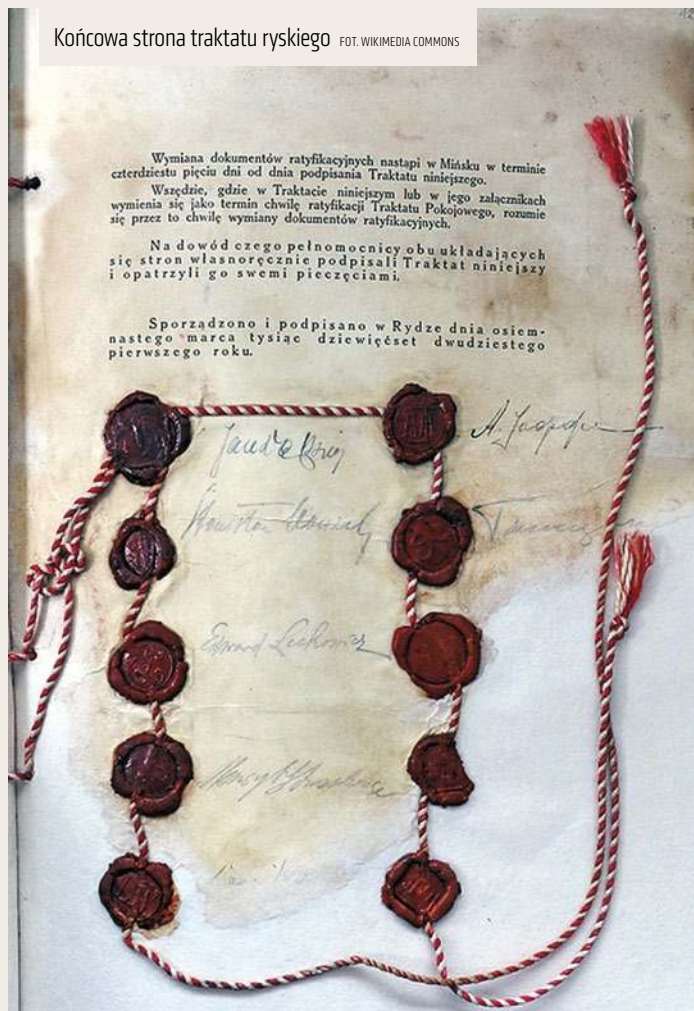 Końcowa strona traktatu ryskiego FOT. WIKIMEDIA COMMONS
Wymiana dokumentów ratyfikacyjnych nastąpi w Mińsku w terminie
czterdziestu pięciu dni od dnia podpisania Traktatu niniejszego.
Wszędzie, gdzie w Traktacie niniejszym lub w jego załącznikach
wymienia się jako termin chwilę ratyfikacji Traktatu Pokojowego, rozumie
się przez to chwilę wymiany dokumentów ratyfikacyjnych.
Na dowód czego pełnomocnicy obu układających
się stron własnoręcznie podpisali Traktat niniejszy
i opatrzyli go swemi pieczęciami.
Sporządzono i podpisano w Rydze dnia osiem-
nastego marca tysiąc dziewięćset dwudziestego
pierwszego roku.
Edward Lechowicz